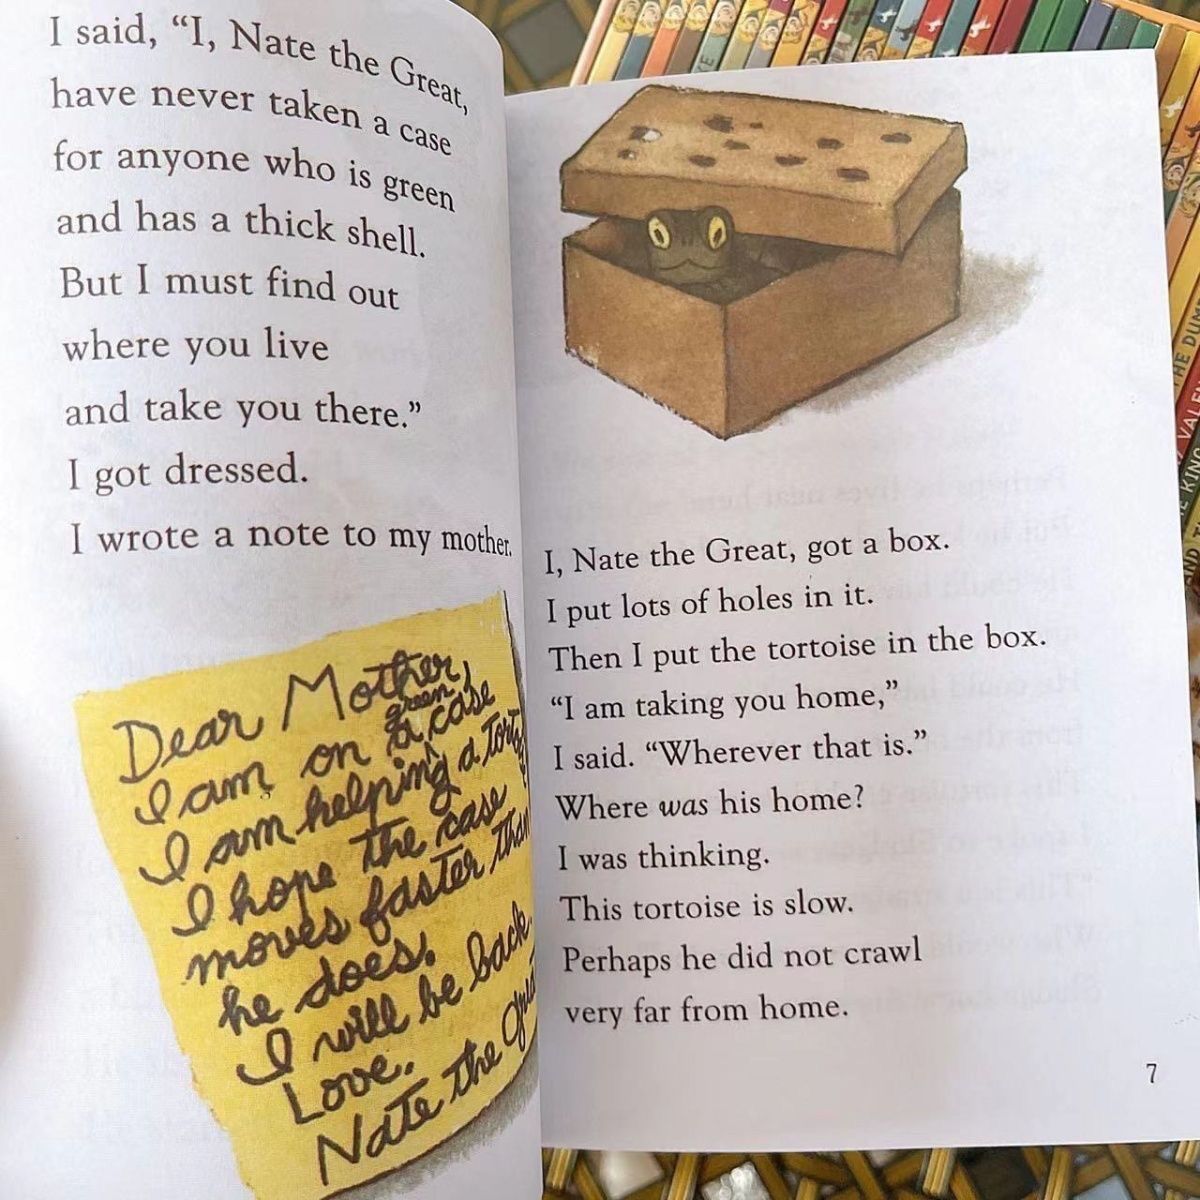 I said, “I, Nate the Great,
have never taken a case
for anyone who is green
and has a thick shell.
But I must find out
where you live
and take you there.”
I got dressed.
I wrote a note to my mother.
Dear Mother,
I am on a green case
I am helping a
I hope the case
moves faster than
he does.
I will be back.
Love.
Nate the
I, Nate the Great, got a box.
I put lots of holes in it.
Then I put the tortoise in the box.
“I am taking you home,”
I said. “Wherever that is.”
Where was his home?
I was thinking.
This tortoise is slow.
Perhaps he did not crawl
very far from home.
7